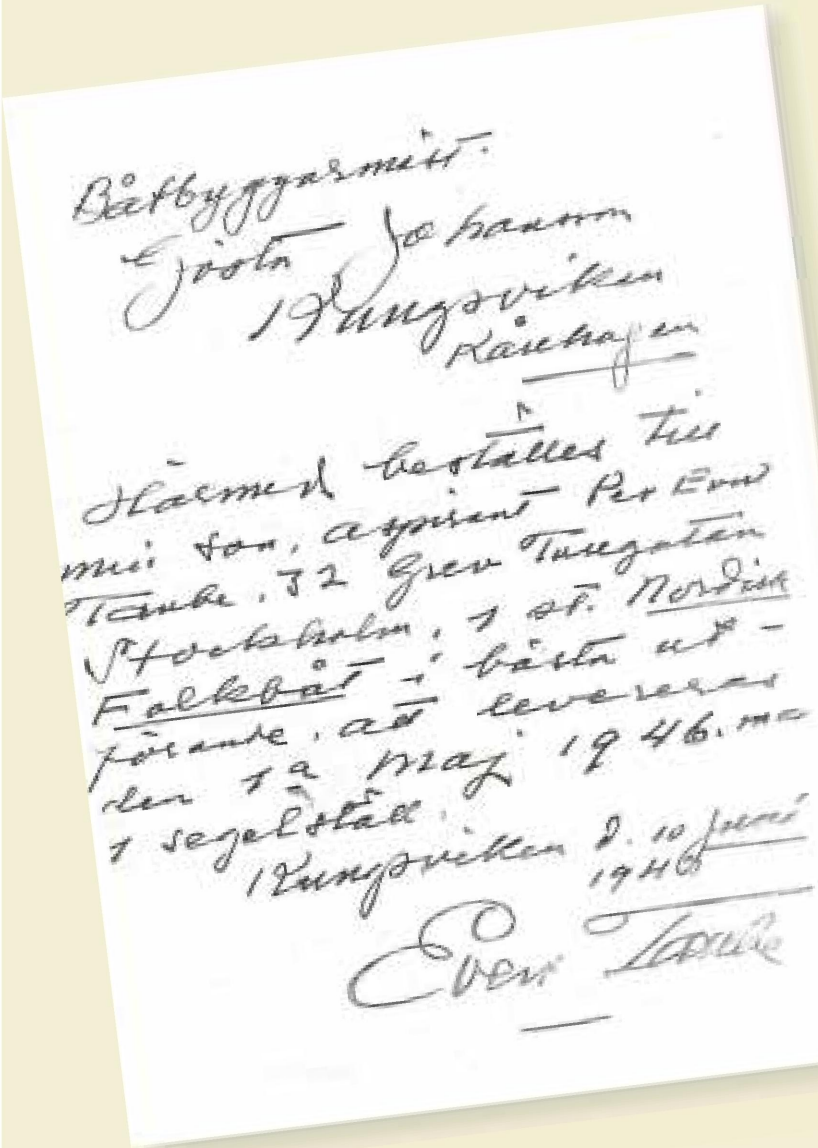 Båtbyggarmäst.
Gösta Johansson
Kungsviken
Kårehogen
Härmed beställes till
min son, aspirant Per Evert
Taube, 32 Grev Turegatan
Stockholm, 1 st. Nordisk
Folkbåt i bästa ut-
förande, att levereras
den 1a maj 1946. med
1 segelställ.
Kungsviken d. 10 juni
1946
Evert Taube